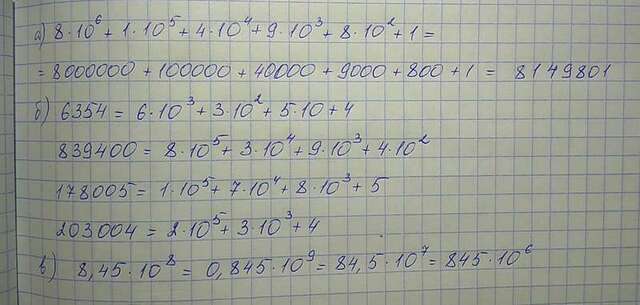 а) 8·10⁶ + 1·10⁵ + 4·10⁴ + 9·10³ + 8·10² + 1 =
= 8000000 + 100000 + 40000 + 9000 + 800 + 1 = 8149801
б) 6354 = 6·10³ + 3·10² + 5·10 + 4
839400 = 8·10⁵ + 3·10⁴ + 9·10³ + 4·10²
178005 = 1·10⁵ + 7·10⁴ + 8·10³ + 5
203004 = 2·10⁵ + 3·10³ + 4
в) 8,45·10⁸ = 0,845·10⁹ = 84,5·10⁷ = 845·10⁶